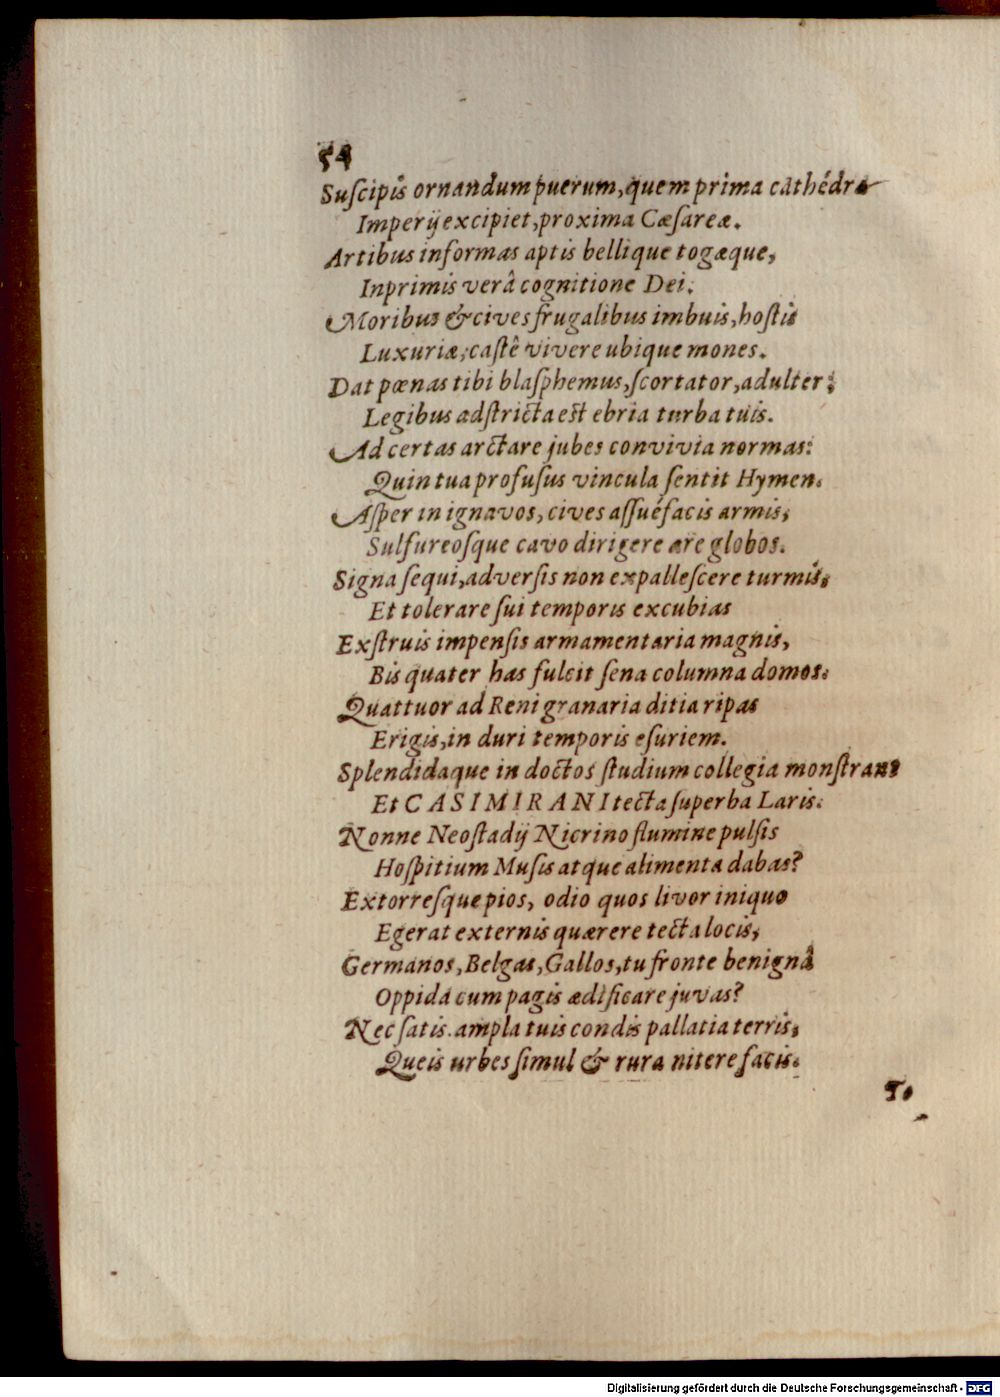 54
Suſcipis ornandum puerum, quem prima cáthédra
Imperij excipiet, proxima Cæſareæ.
Artibus informas aptis bellique togæque,
Inprimis verâ cognitione Dei.
Moribus & cives frugalibus imbuis, hoſtis
Luxuriæ; caſtê vivere ubique mones.
Dat pœnas tibi blaſphemus, ſcortator, adulter:
Legibus adſtricta eſt ebria turba tuis.
Ad certas arctare jubes convivia normas:
Quin tua profuſus vincula ſentit Hymen.
Aſper in ignavos, cives aſſuéfacis armis,
Sulfureoſque cavo dirigere ære globos.
Signa ſequi, adverſis non expalleſcere turmis,
Et tolerare ſui temporis excubias
Exſtruis impenſis armamentaria magnis,
Bis quater has fulcit ſena columna domos.
Quattuor ad Reni granaria ditia ripas
Erigis, in duri temporis eſuriem.
Splendidaque in doctos ſtudium collegia monſtrant
Et CASIMIRANI tecta ſuperba Laris.
Nonne Neoſtadij Nicrino flumine pulſis
Hoſpitium Muſis atque alimenta dabas?
Extorreſque pios, odio quos livor iniquo
Egerat externis quærere tecta locis,
Germanos, Belgas, Gallos, tu fronte benignâ
Oppida cum pagis ædificare juvas?
Nec ſatis ampla tuis condis pallatia terris,
Queis urbes ſimul & rura nitere facis.
Te
Digitalisierung gefördert durch die Deutsche Forschungsgemeinschaft - DFG